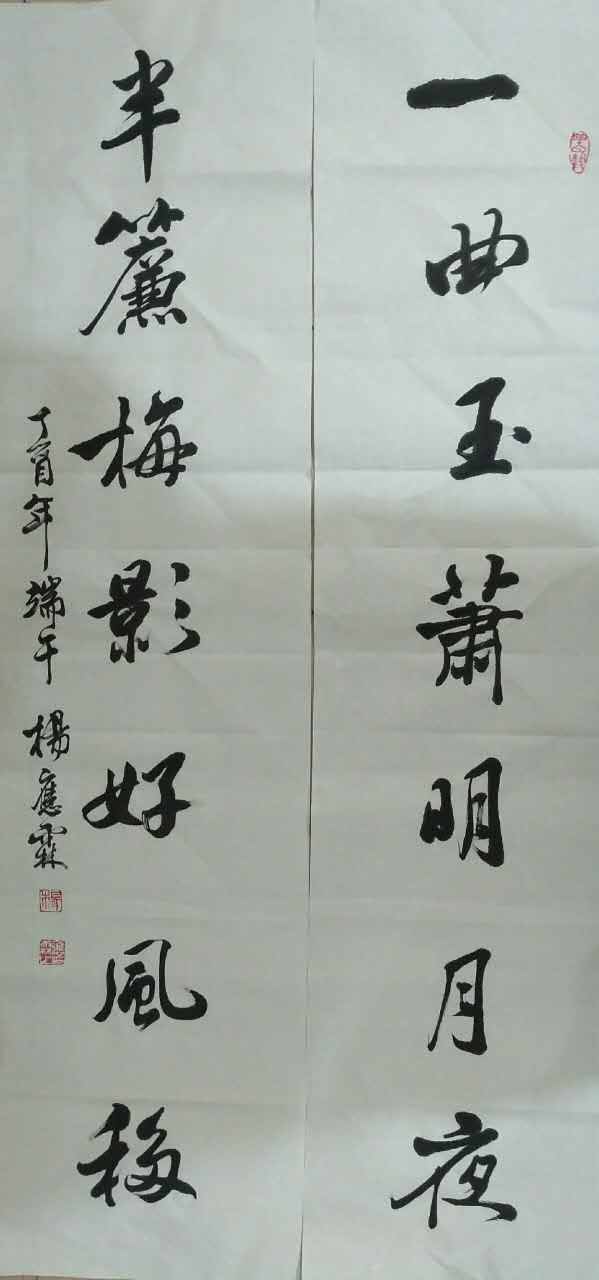 一曲玉蕭明月夜
半簾梅影好風移
丁酉年端午 楊應霖